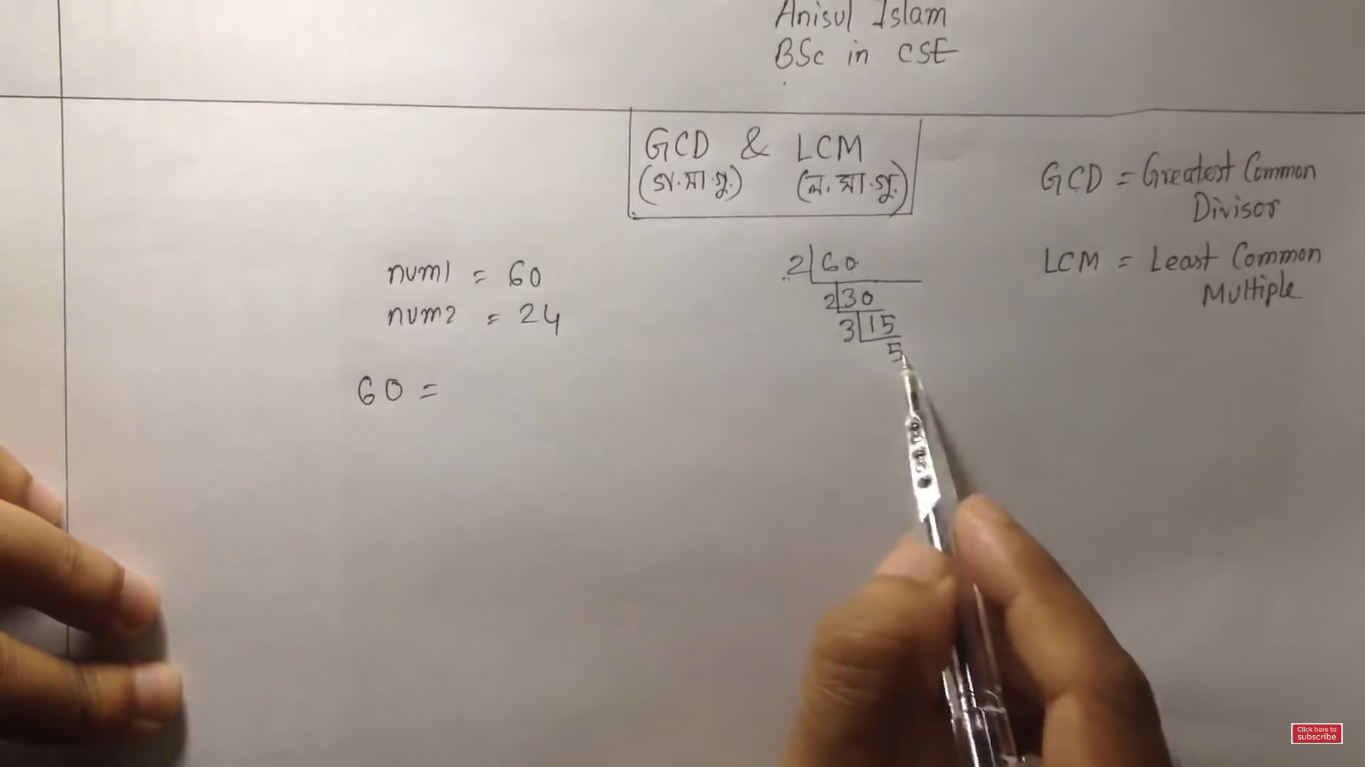 Anisul Islam
BSc in CSE
GCD & LCM
(গ.সা.গু.) (ল.সা.গু.)
GCD = Greatest Common
Divisor
LCM = Least Common
Multiple
num1 = 60
num2 = 24
2 60
2 30
3 15
5
60 =
Click here to
subscribe